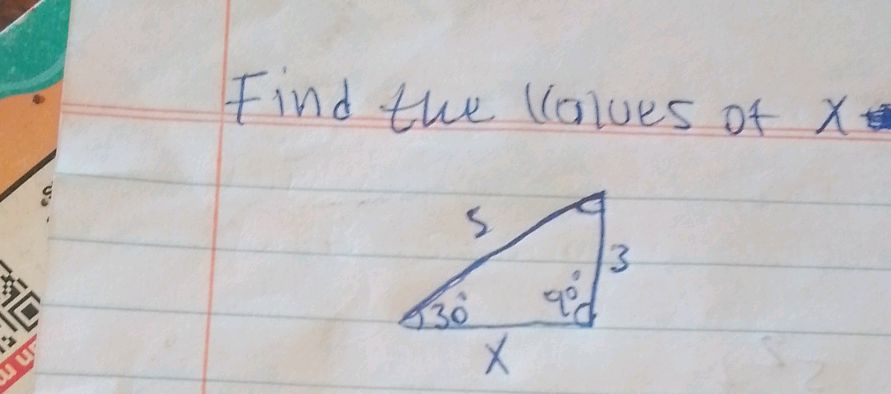 Find the values of x
5
3
30°
90°
x